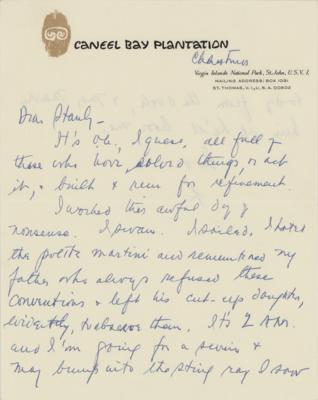 CANEEL BAY PLANTATION
Christmas
Virgin Islands National Park, St. John, U.S.V.I.
MAILING ADDRESS: BOX 1091
ST. THOMAS, V.I., U.S.A. 00802
Dear Stanly-
It's o.k., I guess, all full of
those who have solved things, or act
it, & built & run for refinement.
I worked this awful day of
nonsense. I swam. I sailed, I hated
the polite martini and remembered my
father who always refused these
conventions & left his cut-up daughter,
evidently, to observe them. It's 2 A.M.
and I'm going for a swim &
may bump into the sting ray I saw